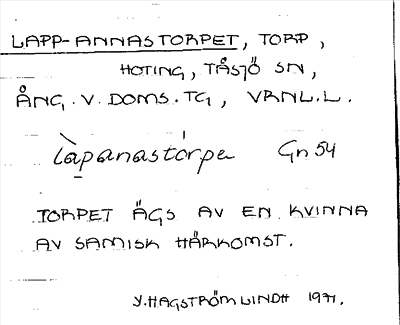 LAPP-ANNASTORPET, TORP,
HOTING, TÅSJÖ SN,
ÅNG. V. DOMS. TG, VRNL.L.
Làpanastórpe Gn 54
TORPET ÄGS AV EN KVINNA
AV SAMISK HÄRKOMST.
Y. HAGSTRÖM LINDH 1971.